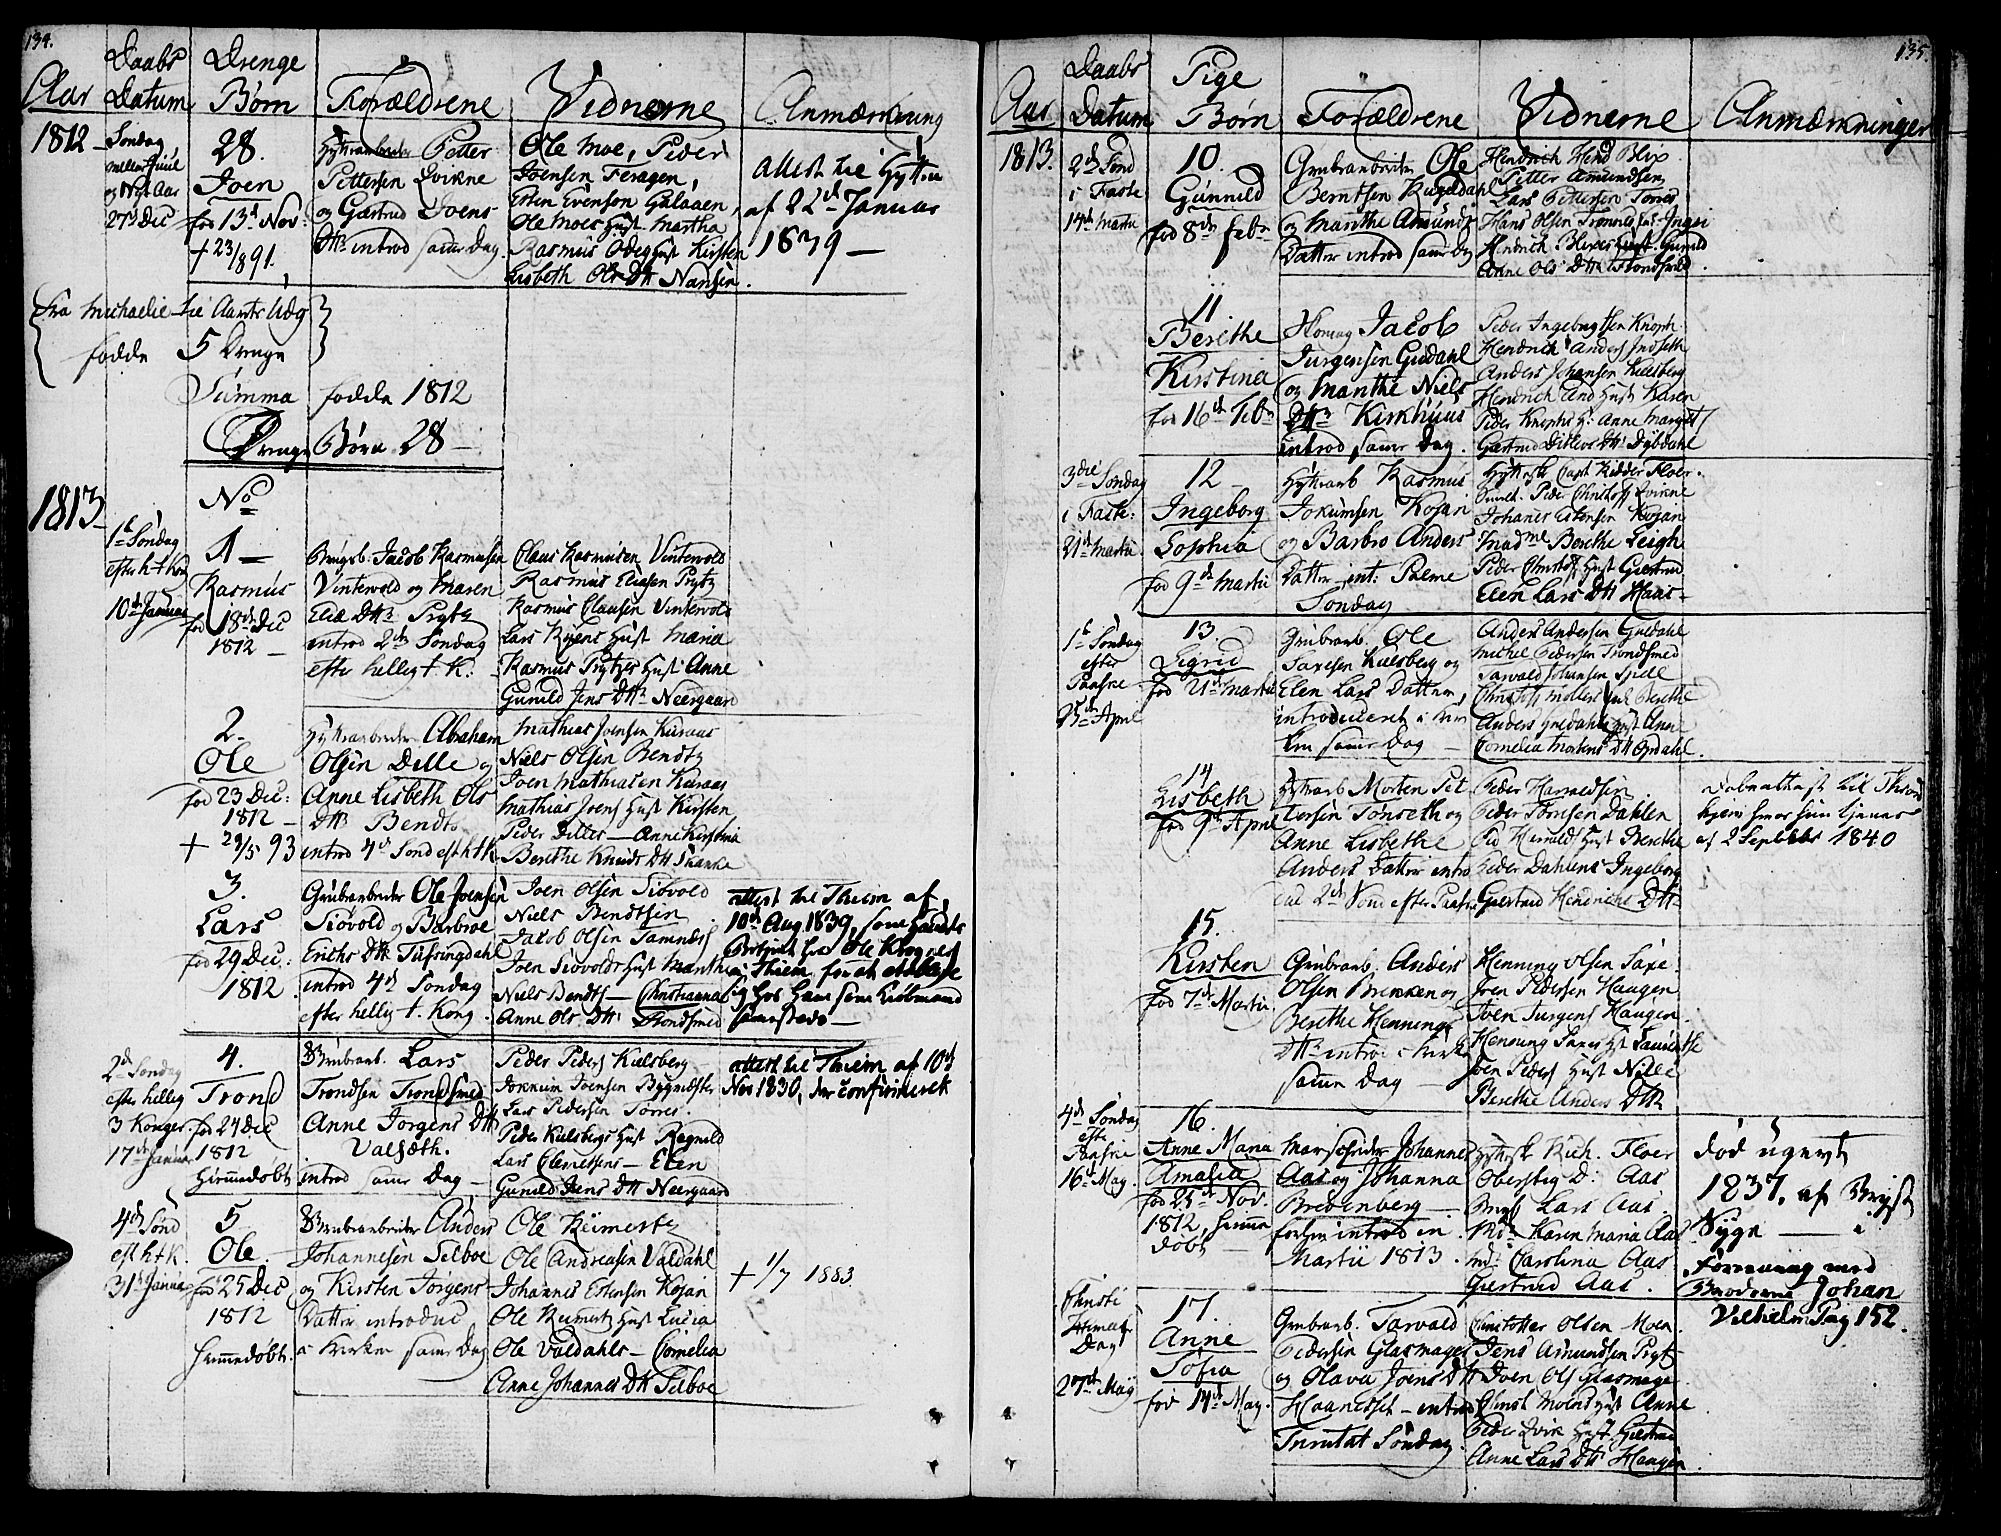 134.
Aar
Daabs
Datum
Drenge
Børn
Forældrene
Vidnerne
Anmærkning
1812
Søndag
mellem Juul
og Nyt Aar
27de Dec
28.
Joen
fød 13d Nov:
+ 23/8 91.
Hyttearbeider Petter
Pettersen Qvikne
og Giertrud Joens
Dttr introd samme Dag
Ole Moe, Peder
Joensen Feragen,
Esten Evensen Galaaen,
Ole Moes Hust Martha
Rasmus Odeg Hust Kirsten
Lisbeth Ols Dtt Nansen.
attest til Hytten
af 22de Januar
1839 —
Fra Michaelie til Aarets Udg
fødde 5 Drenge
Summa fødde 1812
Drenge Børn 28 —
1813
No
1ste Søndag
efter h t Kon
10de Januar
1 —
Rasmus
fød 18de Dec
1812 —
Brugsb. Jacob Rasmusen
Vintervold og Maren
Elia Dttr Prytz
introd 2de Søndag
efter hellig t. K:
Claus Rasmusen Vintervold
Rasmus Eliasen Prytz
Rasmus Clausen Vintervold
Lars Ryens Hust Maria
Rasmus Prytzes Hust Anne
Gunild Jens Dttr Neergaard
2.
Ole
fød 23 Dec:
1812 —
+ 29/5 93
Hyttearbeider Abraham
Olsen Dille og
Anne Lisbeth Ols
Dttr Bendts
introd 4de Sond eft h t K
Mathias Joensen Kuraas
Niels Olsen Bendtz
Joen Mathiasen Kuraas
Mathias Joens Hust Kirsten
Peder Dilles — Anne Kirstina
Berethe Knuds Dtt Skanke
3.
Lars
fød 29 Dec:
1812
Grubearbeider Ole Joensen
Siøvold og Barbroe
Erichs Dtt Tufsingdahl
introd 4de Søndag
efter hellig t. Kong.
Joen Olsen Siøvold
Niels Bendtsen
Jacob Olsen Tamnæs
Joen Siøvolds Hust Marithe
Niels Bendts — Christianna
Anne Ols Dtt Trondsmed
attest til Thiem af
10de Aug 1839, som
Ole Krog
i Thiem for at
sig hos ham som Kiøbmand
sammesteds —
2de Søndag
efter hellig
3 Konger
17de Januar
4.
Trond
fød 24 Dec
1812
Hiemmedøbt
Grubearb. Lars
Trondsen Trondsmed
Anne Jorgens Dtt
Valsæth.
introd samme Dag —
Peder Peders Kielsberg
Jokum Joensen Bygmester
Lars Pedersen Torres.
Peder Kielsbergs Hust Ragnild
Lars Clemetsens — Elen
Gunild Jens Dtt Neergaard
attest til Thiem af 10de
Nov 1830, der confirmeret
4de Sond
eft h t K.
31te Januar
5
Ole
fød 25 Dec
1812
Hiemmedøbt.
Grubearbeider Anders
Johannesen Selboe
og Kirsten Jorgens
Datter introduc
i Kirken samme Dag
Ole Reimertz
Ole Andreasen Valdahl
Johannes Estensen Kojan
Ole Reimertz Hust Lucia
Ole Valdahls — Cornelia
Anne Johannes Dtt Selboe
+ 1/7 1883.
135
Aar
Daabs
Datum
Pige
Børn
Forældrene
Vidnerne
Anmærkninger
1813.
2de Sond
i Faste
14de Martii
10.
Gunnild
fød 8de Febr
Grubearbeider Ole
Berntsen Rugeldahl
og Marithe Amunds
Datter introd samme Dag
Hendrich Hend Blix.
Petter Amundsen
Lars Pettersen Torres
Hans Olsen Tronnes Hust Inger
Hendrich Blixes Hust Gunild
Anne Ols Dtt Trondsmed.
11
Berethe
Kirstina
fød 16de Febr
Jacob
Jurgensen Guldahl
og Marithe Niels
Dttr Kirkhuus
introd samme Dag.
Peder Ingebrigtsen Knoph.
Hendrich Anders Indseth
Anders Johansen Kielsberg
Hendrich And Hust Karen
Peder Knophs H: Anne Margret
Giertrud Ditlevs Dtt Dybdahl
3die Søndag
i Faste:
21de Martii
12 —
Ingeborg
Sophia
fød 9de Martii
Hyttearb Rasmus
Jokumsen Kojan
og Barbro Anders
Datter int: Palme
Søndag
Hytteskr Capt Ridder Floer.
Peder Christoff Qvikne
Johanes Estensen Kojan
Madme Berethe Leigh
Peder Christoff Hust Giertrud
Elen Lars Dtt Haas.
1ste Søndag
efter
Paaske
25de April
13.
Sigrid
fød 21de Martii
Grubearb. Ole
Saxesen Kielsberg og
Elen Lars Datter,
introduceret i Kir
ken samme Dag —
Anders Andersen Guldahl
Michel Pedersen Trondsmed
Tarvald Johansen Spell
Christoff Møllers Hust Berethe
Anders Guldahls Hust Anne
Cornelia Mortens Dtt Opdahl.
14
Lisbeth
fød 9de April
Hyttearb Morten Pet
tersen Tonseth og
Anne Lisbethe
Anders Datter intro
cal 2de Sond efter Paaske
Peder Harraldsen
Peder Tomsen Dahlen
Ped Harralds Hust Berethe
Peder Dahlens Ingeborg
Giertrud Hendrichs Dtt
Dobsattest til Thrond
hjem hvor hun tjener
af 2 September 1840
15.
Kirsten
fød 7de Martii
Grubearb. Anders
Olsen Brækken og
Berethe Hennings
Dttr introd i Kirken
samme Dag —
Henning Olsen Saxe.
Joen Pedersen Haugen
Joen Jurgens Haugen.
Henning Saxes Hst Laurentse
Joen Peders Hust Nille
Berethe Anders Dttr
4de Søndag
efter
Paaske
16de May.
16.
Anne Maria
Amalia
fød 25de Nov.
1812, hiemme
døbt —
Marscheider Johannes
Aas og Johanna
Bredenberg —
forhen introd in
Martii 1813.
Hytteskr Rich. Floer
Oberstig D: Aas
Lars Aas.
Karen Maria Aas
Md: Carolina Aas
Giertrud Aas.
død ugivt
1837, af Bryst
Syge — i
Forening med
Broderne Johan
Vilhelm Pag 152.
Christi
Himelf
Dag
27de May
17.
Anne
Sofia
fød 14de May.
Grubearb. Tarvald
Pedersen Glasmager
og Olava Joens Dtt
Haanesset — introd
Trinitat Søndag.
Christoffer Olsen Moen.
Jens Amundsen Prytz
Joen Ols Glasmager
Christ Moens Hust Anne
Peder Qvik Hust Giertrud
Anne Lars Dtt Haugen